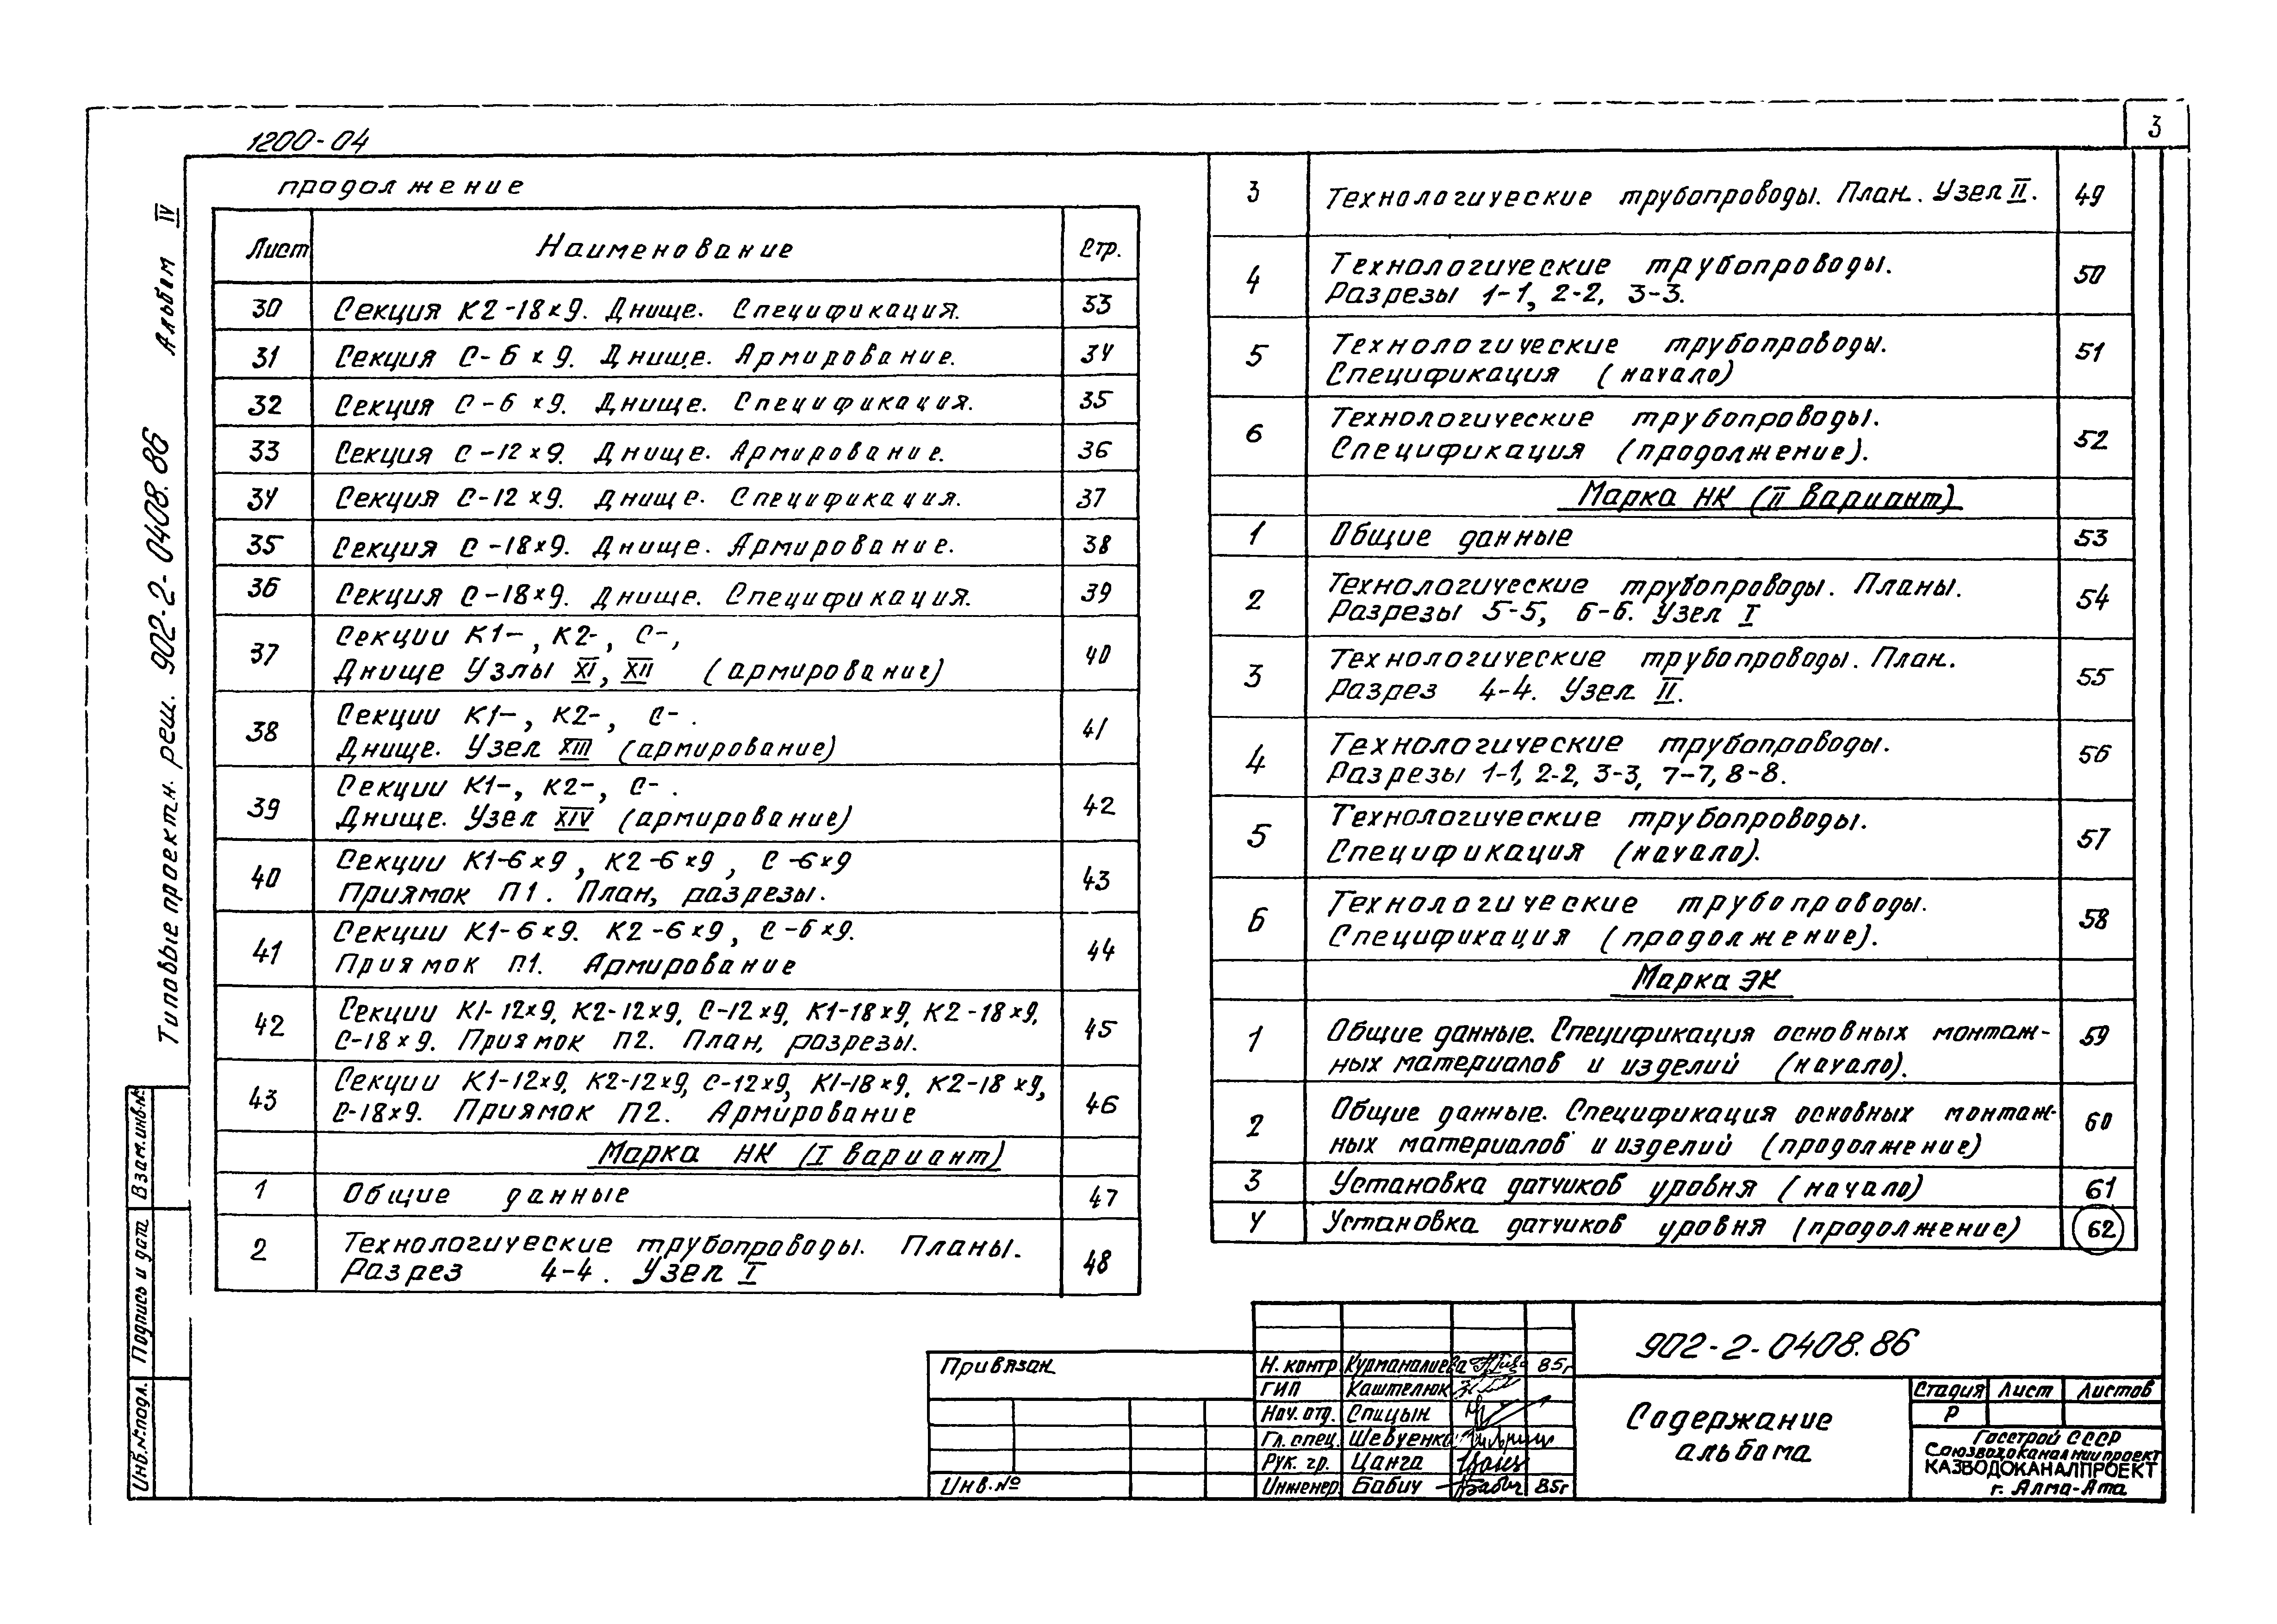 3
1200-04
продолжение
Лист Наименование Стр.
30 Секция К2-18х9. Днище. Спецификация. 33
31 Секция С-6х9. Днище. Армирование. 34
32 Секция С-6х9. Днище. Спецификация. 35
33 Секция С-12х9. Днище. Армирование. 36
34 Секция С-12х9. Днище. Спецификация. 37
35 Секция С-18х9. Днище. Армирование. 38
36 Секция С-18х9. Днище. Спецификация. 39
37 Секции К1-, К2-, С-,
Днище Узлы XI, XII (армирование) 40
38 Секции К1-, К2-, С-.
Днище. Узел XIII (армирование) 41
39 Секции К1-, К2-, С-.
Днище. Узел XIV (армирование) 42
40 Секции К1-6х9, К2-6х9, С-6х9
Приямок П1. План, разрезы. 43
41 Секции К1-6х9. К2-6х9, С-6х9.
Приямок П1. Армирование 44
42 Секции К1-12х9, К2-12х9, С-12х9, К1-18х9, К2-18х9,
С-18х9. Приямок П2. План, розрезы. 45
43 Секции К1-12х9, К2-12х9, С-12х9, К1-18х9, К2-18х9,
С-18х9. Приямок П2. Армирование 46
Марка НК (I вариант)
1 Общие данные 47
2 Технологические трубопроводы. Планы.
Разрез 4-4. Узел I 48
3 Технологические трубопроводы. План. Узел II. 49
4 Технологические трубопроводы.
Разрезы 1-1, 2-2, 3-3. 50
5 Технологические трубопроводы.
Спецификация (начало) 51
6 Технологические трубопроводы.
Спецификация (продолжение). 52
Марка НК (II вариант)
1 Общие данные 53
2 Технологические трубопроводы. Планы.
Разрезы 5-5, 6-6. Узел I 54
3 Технологические трубопроводы. План.
Разрез 4-4. Узел II. 55
4 Технологические трубопроводы.
Разрезы 1-1, 2-2, 3-3, 7-7, 8-8. 56
5 Технологические трубопроводы.
Спецификация (начало). 57
6 Технологические трубопроводы.
Спецификация (продолжение). 58
Марка ЭК
1 Общие данные. Спецификация основных монтаж-
ных материалов и изделий (начало). 59
2 Общие данные. Спецификация основных монтаж-
ных материалов и изделий (продолжение) 60
3 Установка датчиков уровня (начало) 61
4 Установка датчиков уровня (продолжение) 62
Типовые проектн. реш. 902-2-0408.86 Альбом IV
Взам.инв.№
Подпись и дата
Инв.№подл.
Привязан
Инв.№
Н. контр Курманалиева 85г
ГИП Каштелюк
Нач. отд. Спицын
Гл. спец. Шевченко
Рук. гр. Цанга
Инженер Бабич Бабич 85г
902-2-0408.86
Содержание
альбома
Стадия Лист Листов
Р
Госстрой СССР
Союзводоканалниипроект
КАЗВОДОКАНАЛПРОЕКТ
г. Алма-Ата